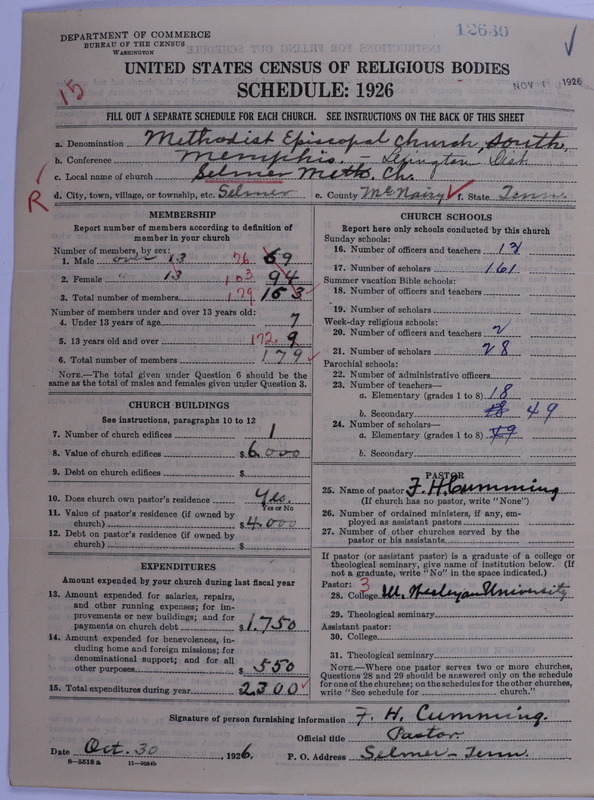 12630
DEPARTMENT OF COMMERCE
BUREAU OF THE CENSUS
WASHINGTON
UNITED STATES CENSUS OF RELIGIOUS BODIES
SCHEDULE: 1926
NOV 1 1926
15
FILL OUT A SEPARATE SCHEDULE FOR EACH CHURCH. SEE INSTRUCTIONS ON THE BACK OF THIS SHEET
a. Denomination Methodist Episcopal Church, South,
b. Conference Memphis. - Lexington Dist
c. Local name of church Selmer Meth. Ch.
R
d. City, town, village, or township, etc. Selmer e. County McNairy f. State Tenn.
MEMBERSHIP
Report number of members according to definition of
member in your church
Number of members, by sex:
1. Male over 13 76 69
2. Female " 13 103 94
3. Total number of members 179 163
Number of members under and over 13 years old:
4. Under 13 years of age 7
5. 13 years old and over 172 9
6. Total number of members 179
NOTE.—The total given under Question 6 should be
same as the total of males and females given under Question 3.
CHURCH BUILDINGS
See instructions, paragraphs 10 to 12
7. Number of church edifices 1
8. Value of church edifices $6,000
9. Debt on church edifices $
10. Does church own pastor's residence Yes.
Yes or No
11. Value of pastor's residence (if owned by
church) $4,000
12. Debt on pastor's residence (if owned by
church) $
EXPENDITURES
Amount expended by your church during last fiscal year
13. Amount expended for salaries, repairs,
and other running expenses; for im-
provements or new buildings; and for
payments on church debt $1,750
14. Amount expended for benevolences, in-
cluding home and foreign missions; for
denominational support; and for all
other purposes $550
15. Total expenditures during year 2300
CHURCH SCHOOLS
Report here only schools conducted by this church
Sunday schools:
16. Number of officers and teachers 12
17. Number of scholars 161
Summer vacation Bible schools:
18. Number of officers and teachers
19. Number of scholars
Week-day religious schools:
20. Number of officers and teachers 2
21. Number of scholars 28
Parochial schools:
22. Number of administrative officers
23. Number of teachers—
a. Elementary (grades 1 to 8) 18
b. Secondary 18 49
24. Number of scholars—
a. Elementary (grades 1 to 8) 49
b. Secondary
PASTOR
25. Name of pastor F. H. Cumming
(If church has no pastor, write "None")
26. Number of ordained ministers, if any, em-
ployed as assistant pastors
27. Number of other churches served by the
pastor or his assistants
If pastor (or assistant pastor) is a graduate of a college or
theological seminary, give name of institution below. (If
not a graduate, write "No" in the space indicated.)
Pastor: 3
28. College Wesleyan University
29. Theological seminary
Assistant pastor:
30. College
31. Theological seminary
NOTE.—Where one pastor serves two or more churches,
Questions 28 and 29 should be answered only on the schedule
for one of the churches; on the schedules for the other churches,
write "See schedule for church."
Signature of person furnishing information F. H. Cumming.
Official title Pastor
Date Oct. 30, 1926. P. O. Address Selmer - Tenn.
8—5518a